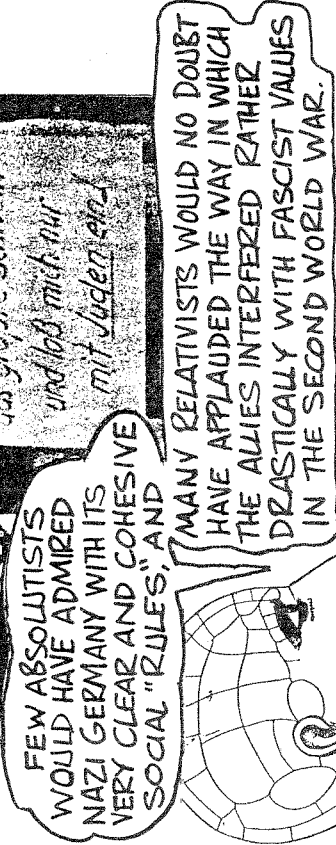 und laß mich nur
mit Juden ein!
FEW ABSOLUTISTS
WOULD HAVE ADMIRED
NAZI GERMANY WITH ITS
VERY CLEAR AND COHESIVE
SOCIAL "RULES," AND
MANY RELATIVISTS WOULD NO DOUBT
HAVE APPLAUDED THE WAY IN WHICH
THE ALLIES INTERFERED RATHER
DRASTICALLY WITH FASCIST VALUES
IN THE SECOND WORLD WAR.